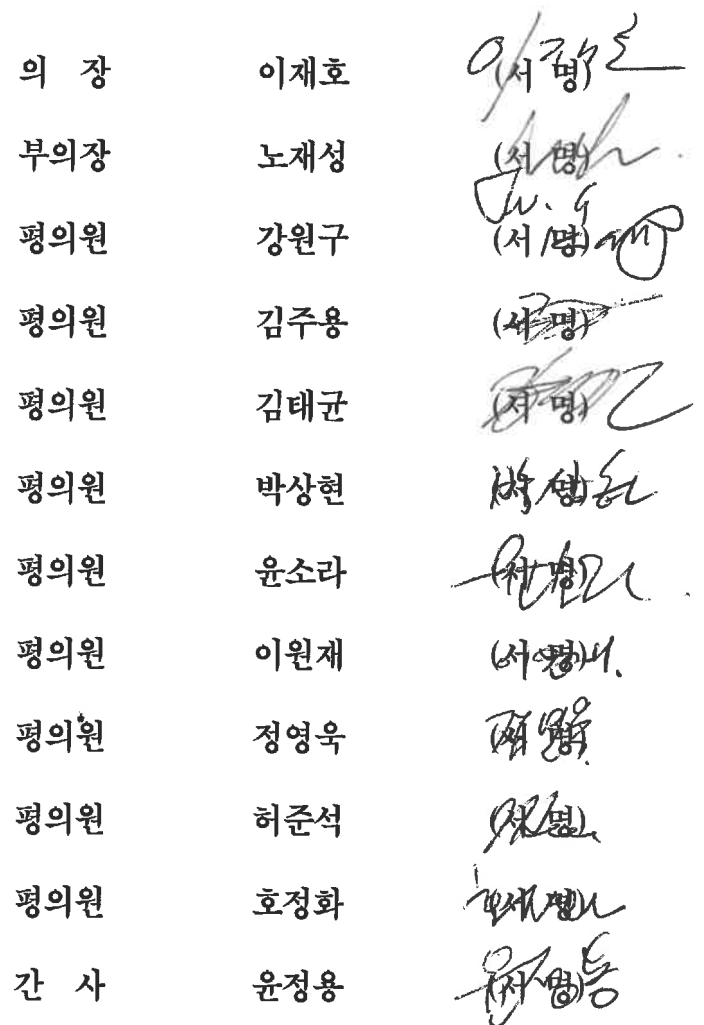 의 장 이재호 (서 명)
부의장 노재성 (서 명)
평의원 강원구 (서 명)
평의원 김주용 (서 명)
평의원 김태균 (서 명)
평의원 박상현 (서 명)
평의원 윤소라 (서 명)
평의원 이원재 (서 명)
평의원 정영욱 (서 명)
평의원 허준석 (서 명)
평의원 호정화 (서 명)
간 사 윤정용 (서 명)